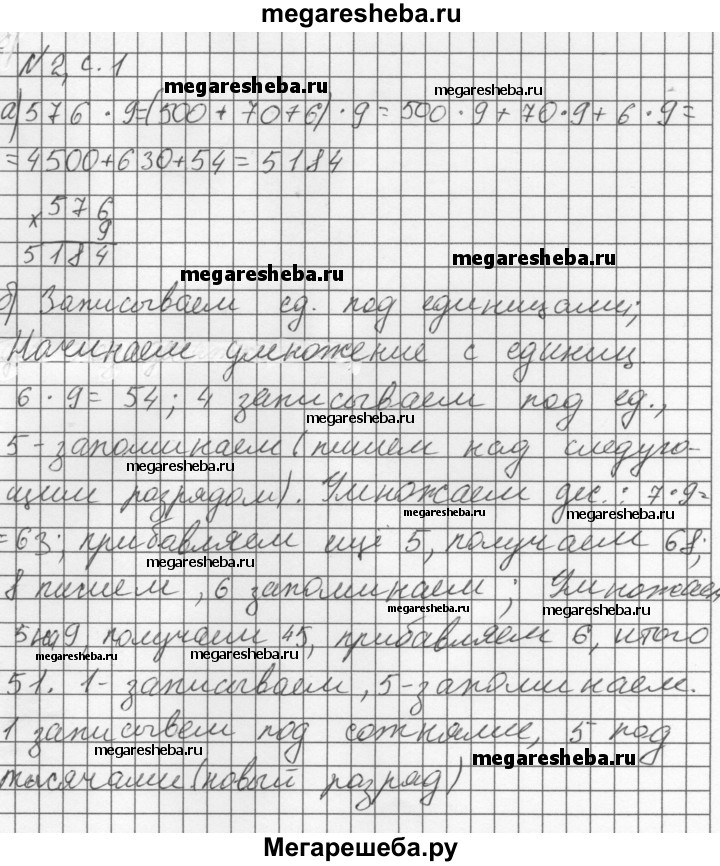 megaresheba.ru
№ 2, с. 1
megaresheba.ru megaresheba.ru
а) 576 · 9=(500 + 70+6) · 9 = 500 · 9 + 70 · 9 + 6 · 9 =
= 4500+630+54 = 5184
× 576
9
5184
megaresheba.ru
megaresheba.ru
б) Записываем ед. под единицами;
Начинаем умножение с единиц
6 · 9 = 54; 4 записываем под ед.,
megaresheba.ru
5-запоминаем (пишем над следую-
megaresheba.ru
щим разрядом). Умножаем дес.: 7·9=
megaresheba.ru megaresheba.ru
=63; прибавляем ещё 5, получаем 68;
megaresheba.ru
8 пишем, 6 запоминаем; Умножаем
megaresheba.ru megaresheba.ru
5 на 9, получаем 45, прибавляем 6, итого
megaresheba.ru megaresheba.ru
51. 1- записываем, 5-запоминаем.
1 записывем под сотнями, 5 под
megaresheba.ru megaresheba.ru
тысячами (новый разряд)
Мегарешеба.ру